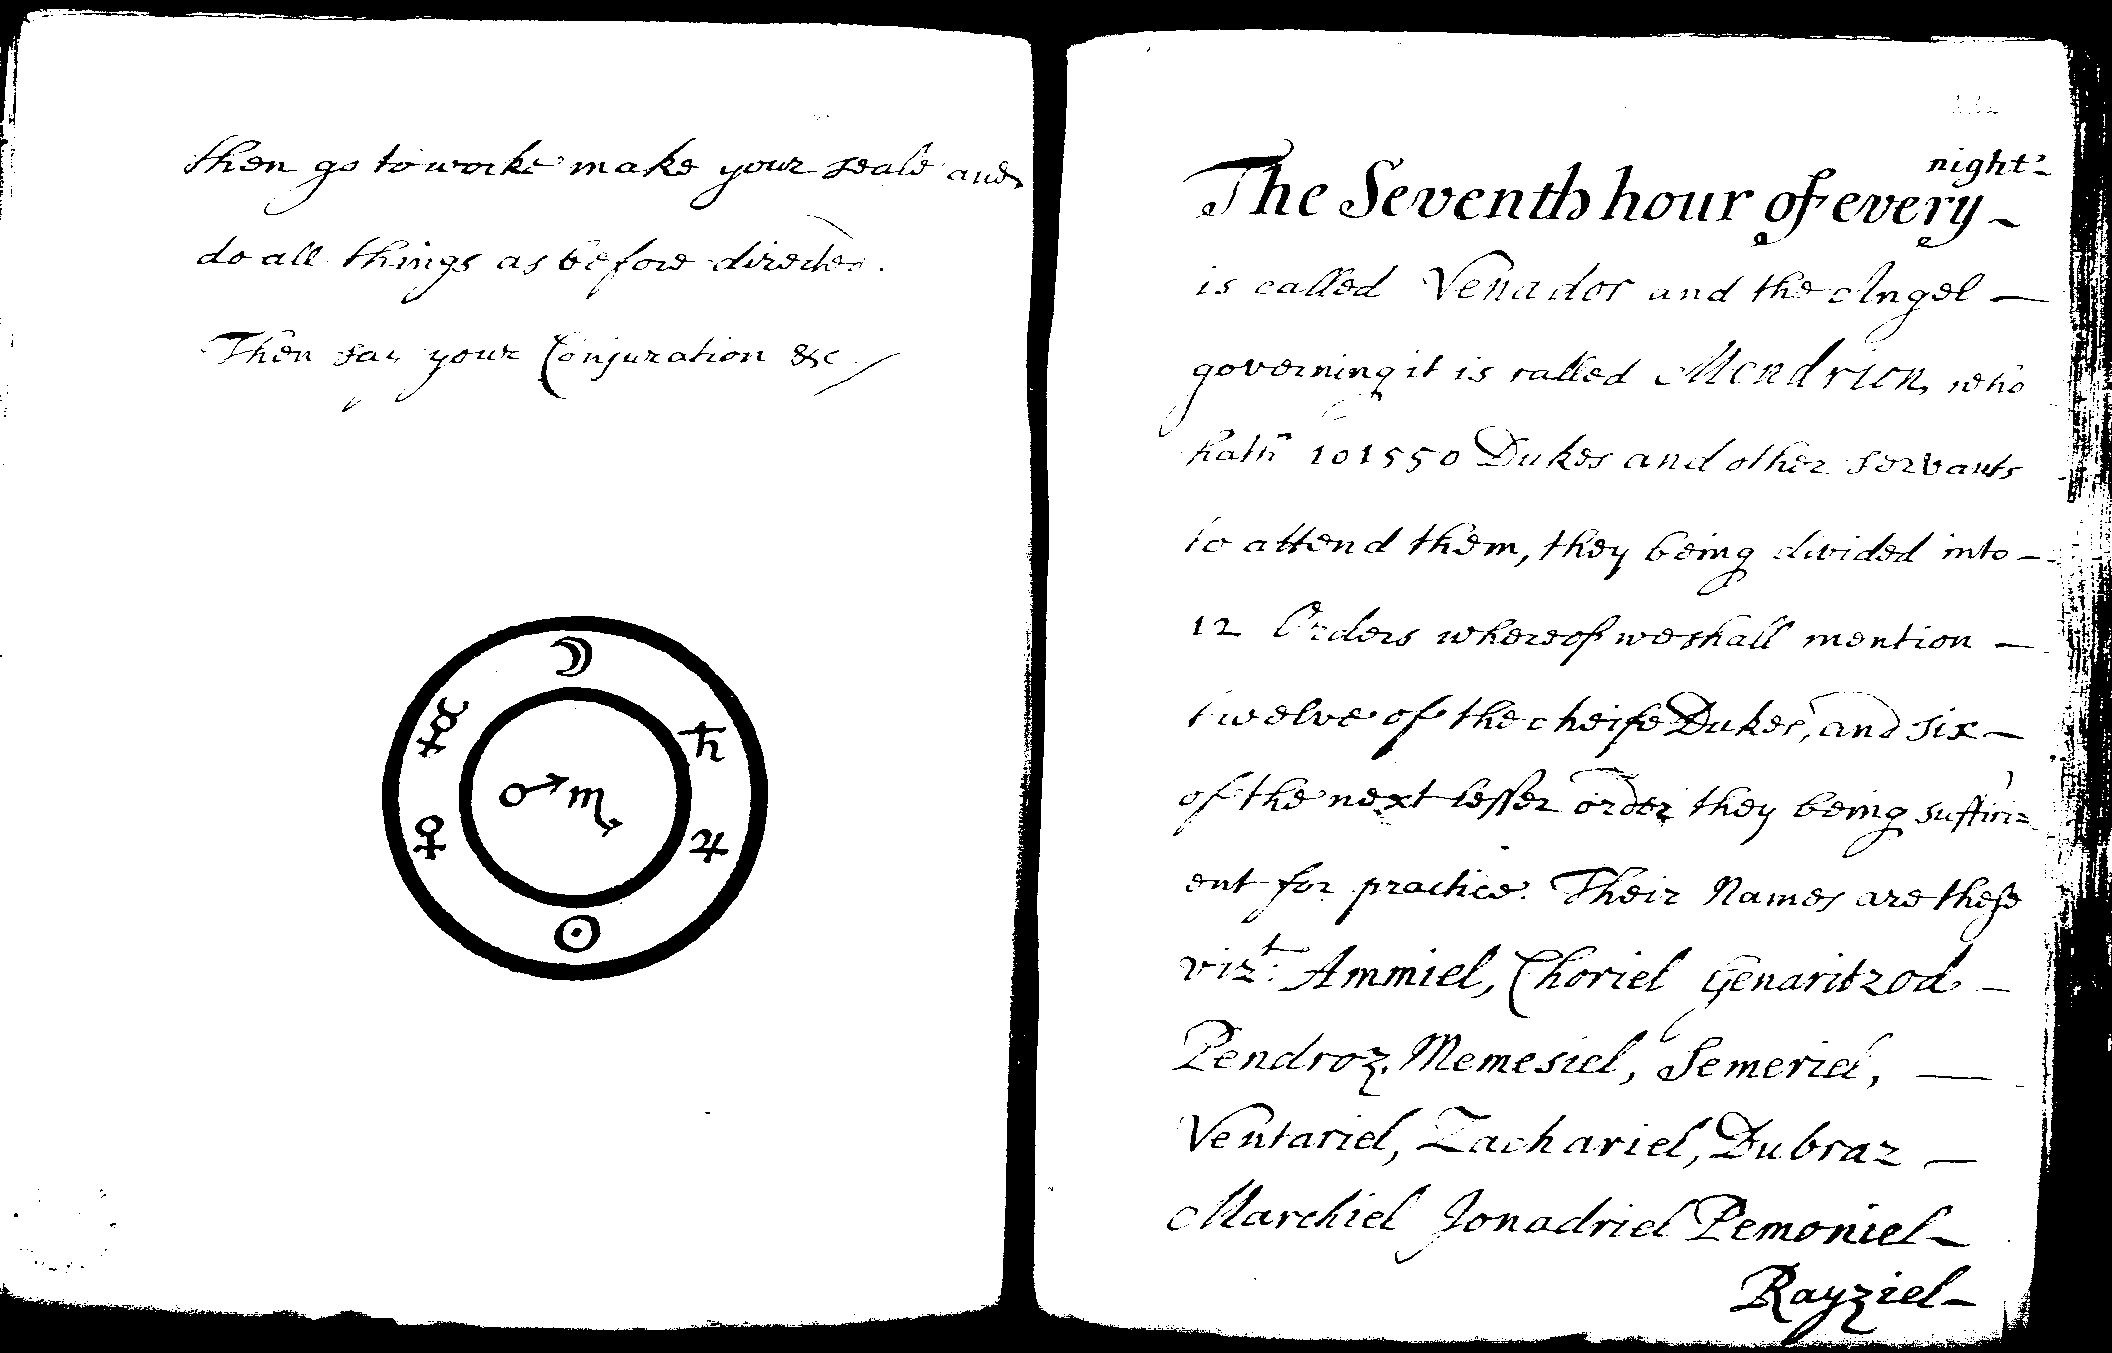 then go to worke make your seale and
do all things as before directed.
Then say your Conjuration &c
night
The Seventh hour of every
is called Venador and the Angel
governing it is called Mendrion, who
hath 101550 Dukes and other servants
to attend them, they being divided into
12 Orders whereof we shall mention
twelve of the cheife Dukes, and six
of the next lesser order they being suffici=
ent for practice. Their Names are these
vizt: Ammiel, Choriel Genaritzod
Pendroz, Memesiel, Semeriel,
Ventariel, Zachariel, Dubraz
Marchiel Jonadriel Pemoniel
Rayziel